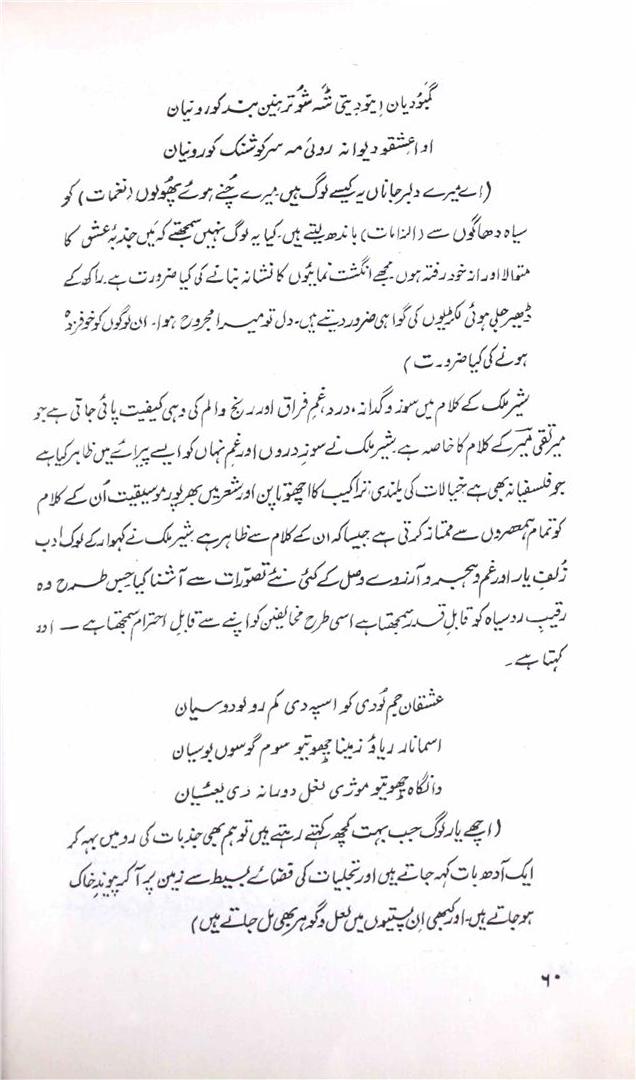 گمبوُدیان اِیتودیتی شہ شوُتر ہنین بند کورونیان
اواعشقو دیوانہ روئے مہ سر کوشنک کورونیان
(اے میرے دلبر جاناں یہ کیسے لوگ ہیں۔ میرے چُنے ہوئے پھُولوں (نغمات) کو
سیاہ دھاگوں سے (الزامات) باندھ لیتے ہیں۔ کیا یہ لوگ نہیں سمجھتے کہ میں جذبۂ عشق کا
متوالا اور از خود رفتہ ہوں۔ مجھے انگشت نمائیوں کا نشانہ بنانے کی کیا ضرورت ہے۔ راکھ کے
ڈھیر جلی ہوئی لکڑیوں کی گواہی ضرور دیتے ہیں۔ دل تو میرا مجروح ہوا۔ ان لوگوں کو خوفزدہ
ہونے کی کیا ضرورت)
شیر ملک کے کلام میں سوز و گداز، درد، غم فراق اور رنج و الم کی وہی کیفیت پائی جاتی ہے جو
میر تقی میرؔ کے کلام کا خاصہ ہے۔ شیر ملک نے سوزِ دروں اور غم نہاں کو ایسے پیرائے میں ظاہر کیا ہے
جو فلسفیانہ بھی ہے خیالات کی بلندی، تراکیب کا اچھوتا پن اور شعر میں بھرپور موسیقیت اُن کے کلام
کو تمام ہمعصروں سے ممتاز کرتی ہے جیسا کہ ان کے کلام سے ظاہر ہے شیر ملک نے کہوار کے لوک ادب
زُلفِ یار اور غم و ہجر و آرزوے وصل کے کئی نئے تصوّرات سے آشنا کیا جس طرح وہ
رقیبِ رد سیاہ کو قابلِ قدر سمجھتا ہے اسی طرح مخالفین کو اپنے سے قابلِ احترام سمجھتا ہے — اور
کہتا ہے۔
عشقان جم لُودی کو اسپہ دی کم رو لودوسیان
اسمانار ریاؤ زمینا چھوتیو سوم گوسوں بوسیان
دانگاہ چھوتیو موژی لعل دورانہ دی یعشیان
(اچھے یار لوگ جب بہت کچھ کہتے رہتے ہیں تو ہم بھی جذبات کی رو میں بہہ کر
ایک آدھ بات کہہ جاتے ہیں اور تجلیات کی فضائے بسیط سے زمین پر آ کر پیوندِ خاک
ہو جاتے ہیں۔ اور کبھی اِن پستیوں میں لعل و گوہر بھی مل جاتے ہیں)
۶۰